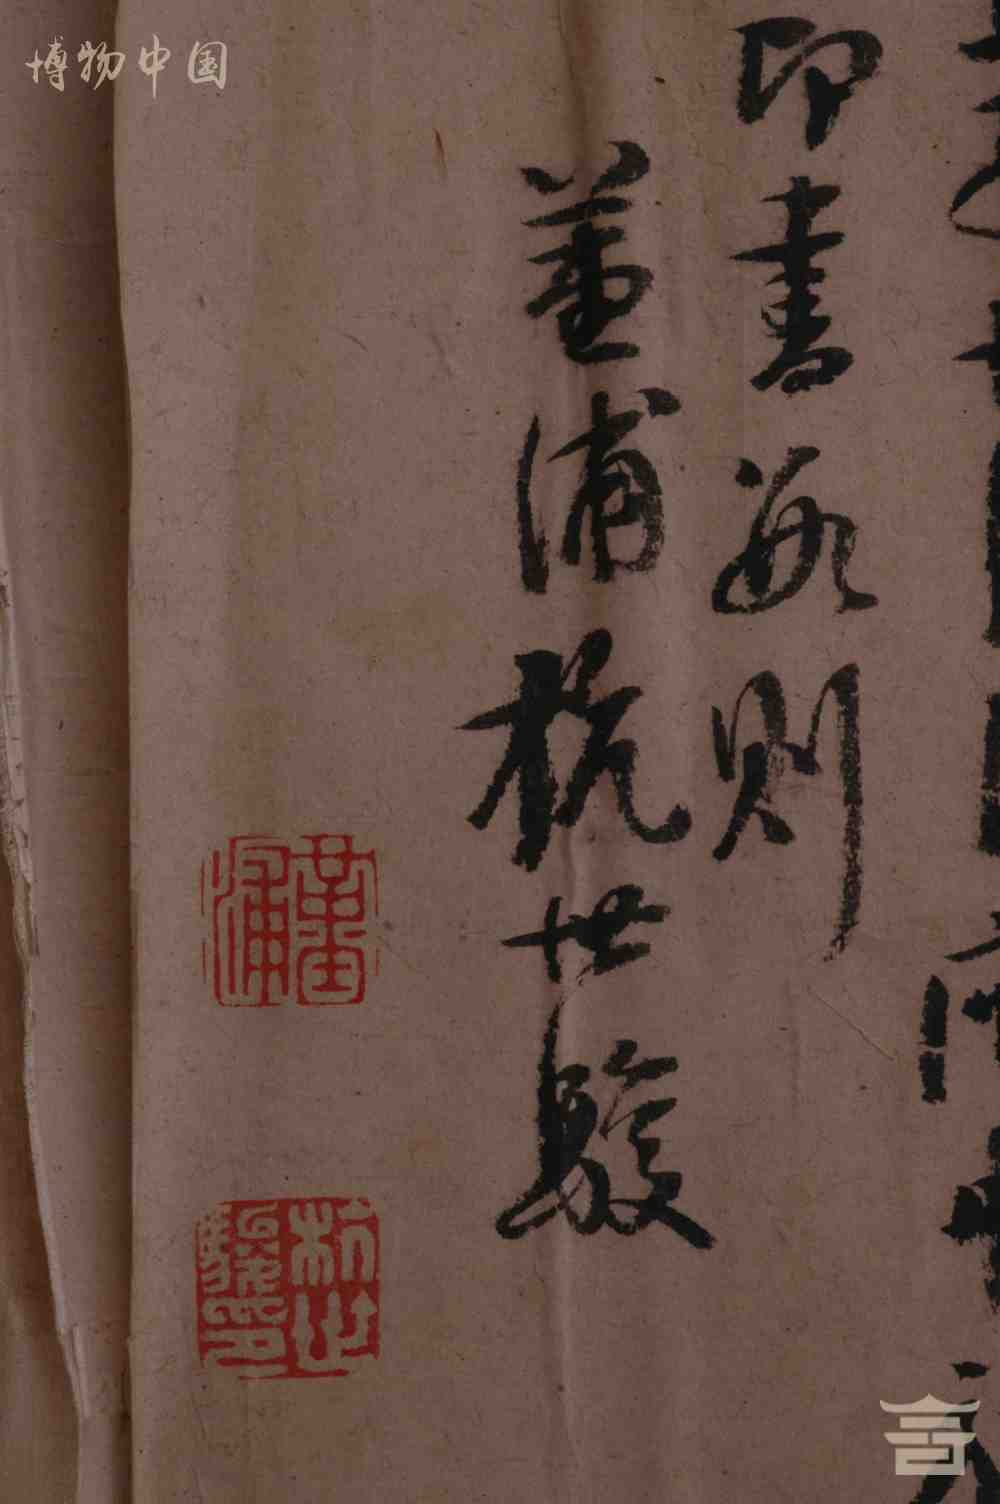 印書數則
菫浦杭世駿
菫浦
杭世駿印
博物中国